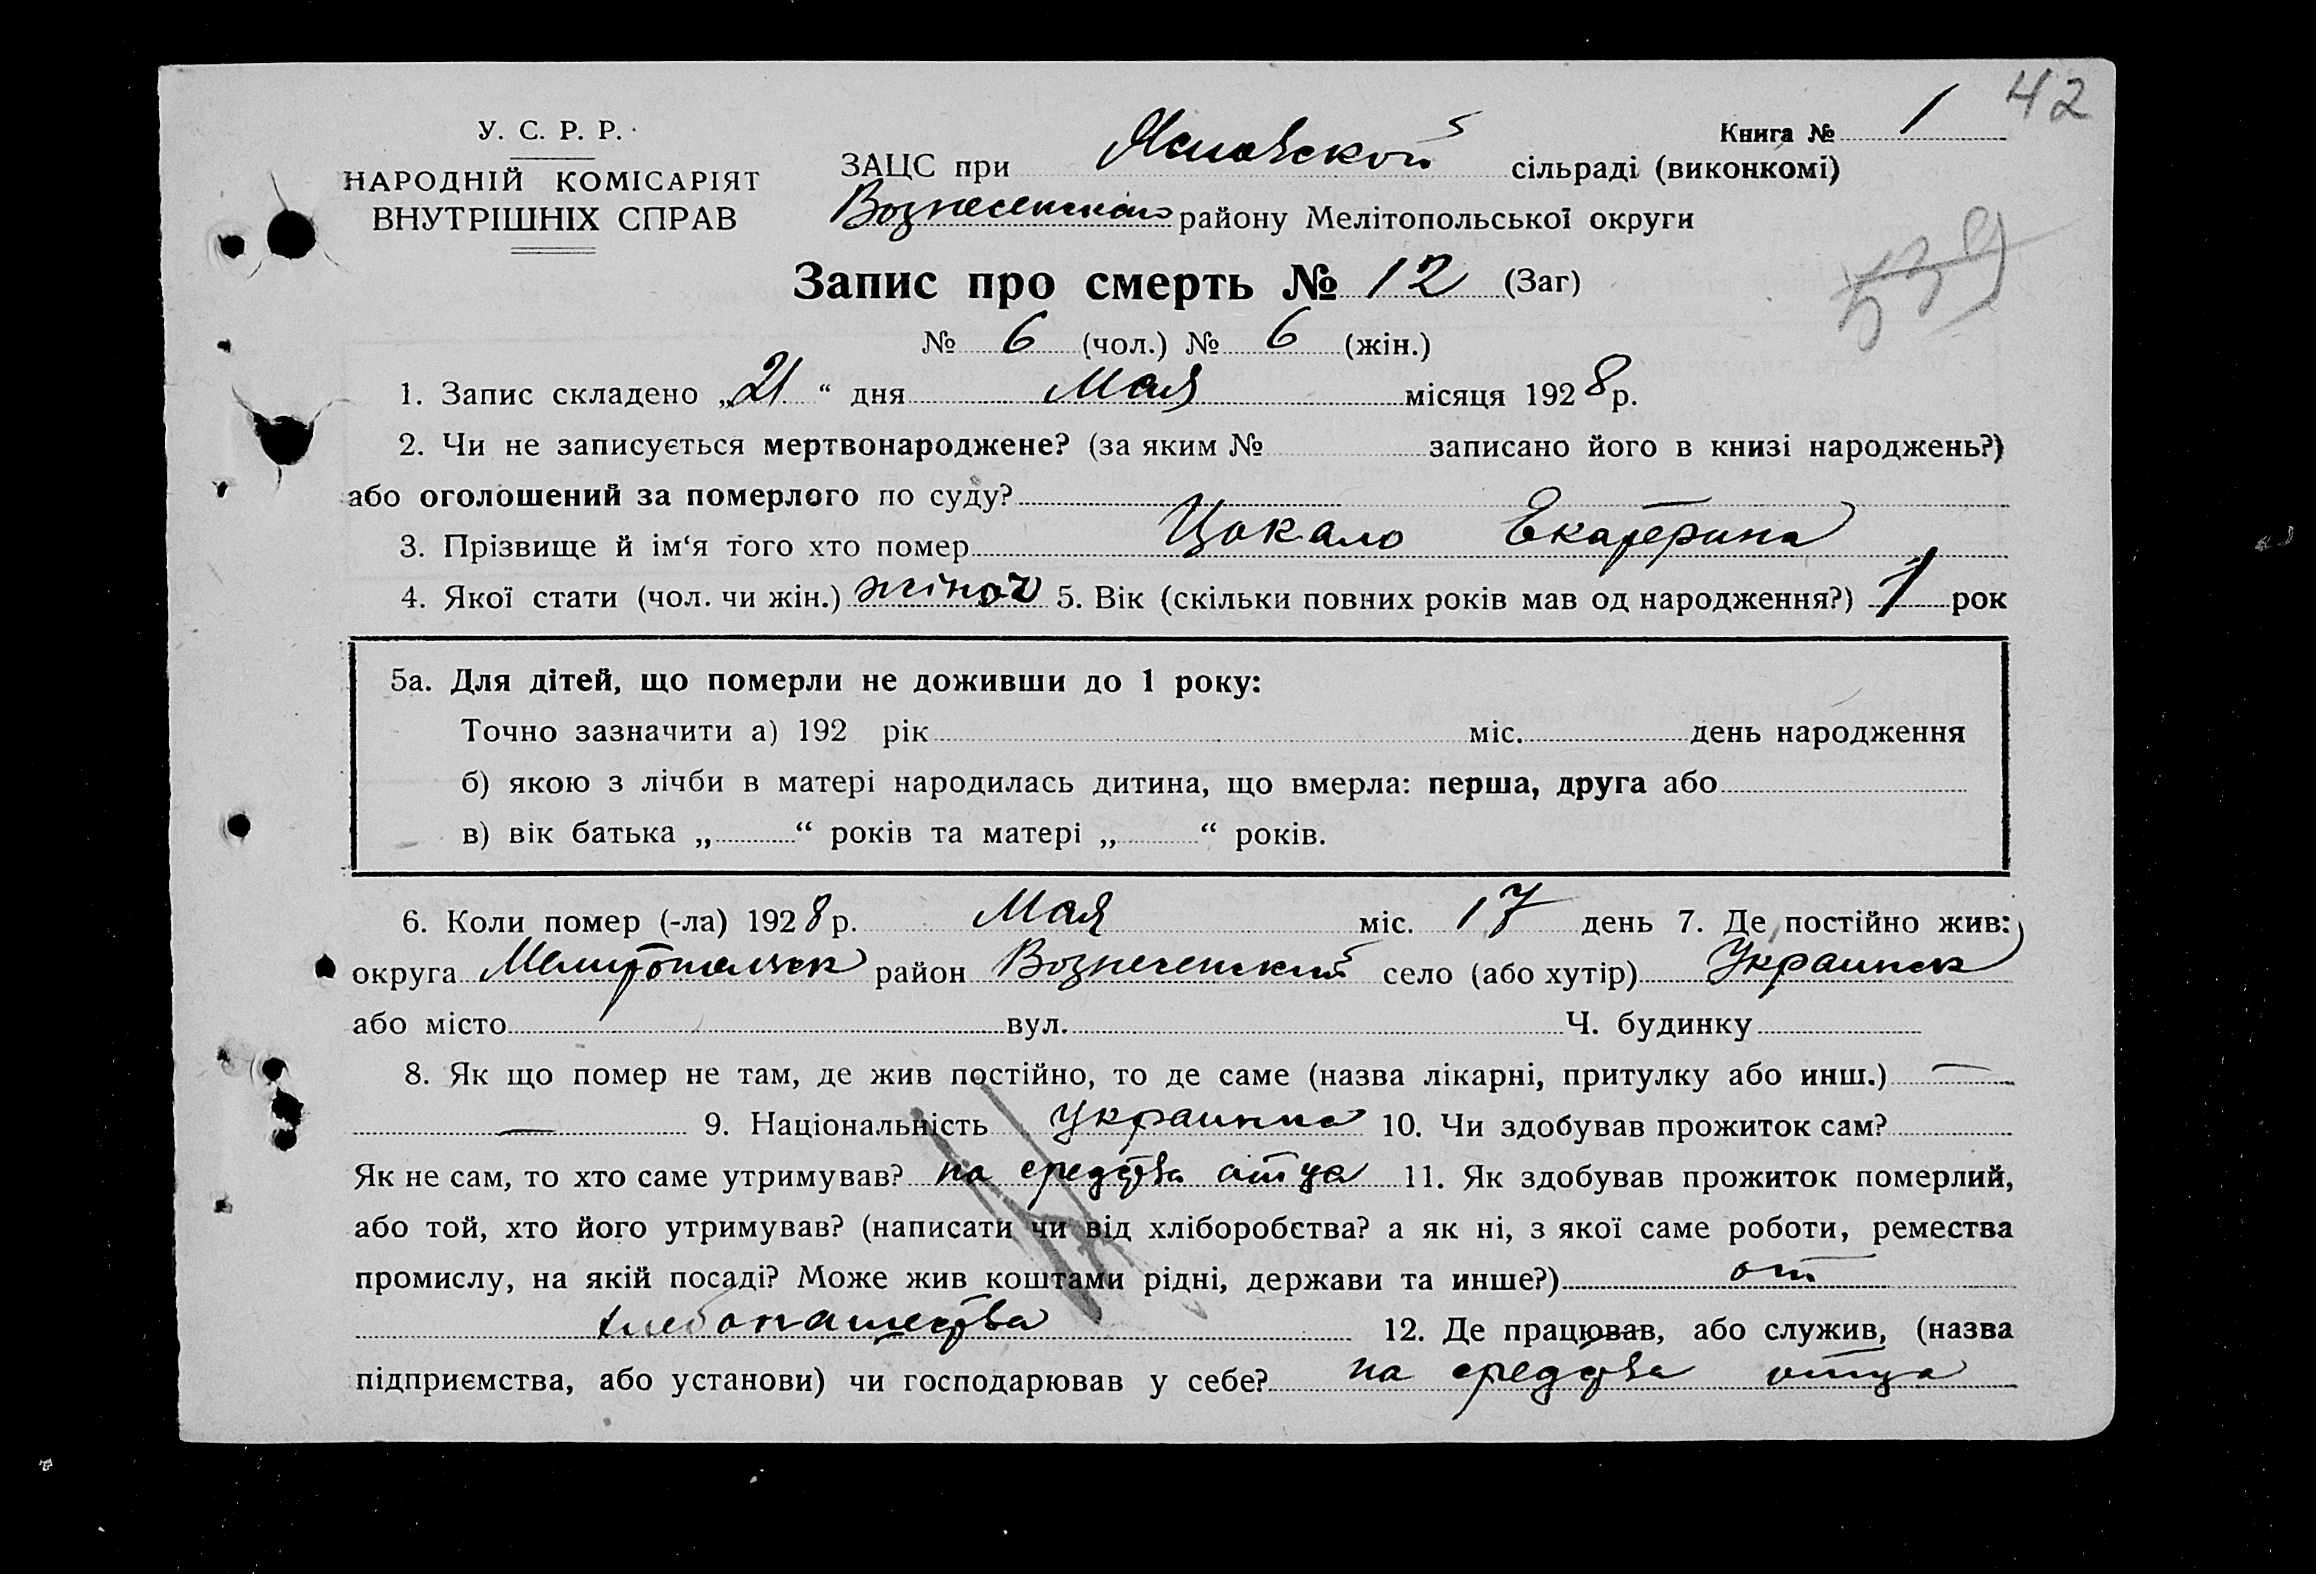 42
У. С. Р. Р.
НАРОДНІЙ КОМІСАРІЯТ
ВНУТРІШНІХ СПРАВ
Книга № 1
ЗАЦС при сільраді (виконкомі)
Вознесенского району Мелітопольської округи
Запис про смерть № 12 (Заг)
№ 6 (чол.) № 6 (жін.)
1. Запис складено „21“ дня Мая місяця 1928 р.
2. Чи не записується мертвонароджене? (за яким № записано його в книзі народжень?)
або оголошений за померлого по суду?
3. Прізвище й ім‘я того хто помер Цокало Екатерина
4. Якої стати (чол. чи жін.) жіноч 5. Вік (скільки повних років мав од народження?) 1 рок
5а. Для дітей, що померли не доживши до 1 року:
Точно зазначити а) 192 рік міс. день народження
б) якою з лічби в матері народилась дитина, що вмерла: перша, друга або
в) вік батька „ “ років та матері „ “ років.
6. Коли помер (-ла) 1928 р. Мая міс. 17 день 7. Де постійно жив:
округа Мелитопольск район Вознесенский село (або хутір) Украинск
або місто вул. Ч. будинку
8. Як що помер не там, де жив постійно, то де саме (назва лікарні, притулку або инш.) —
— 9. Національність украинка 10. Чи здобував прожиток сам?
Як не сам, то хто саме утримував? на средства отца 11. Як здобував прожиток померлий,
або той, хто його утримував? (написати чи від хліборобства? а як ні, з якої саме роботи, ремества
промислу, на якій посаді? Може жив коштами рідні, держави та инше?) от
хлебопашества 12. Де працював, або служив, (назва
підприємства, або установи) чи господарював у себе? на средства отца